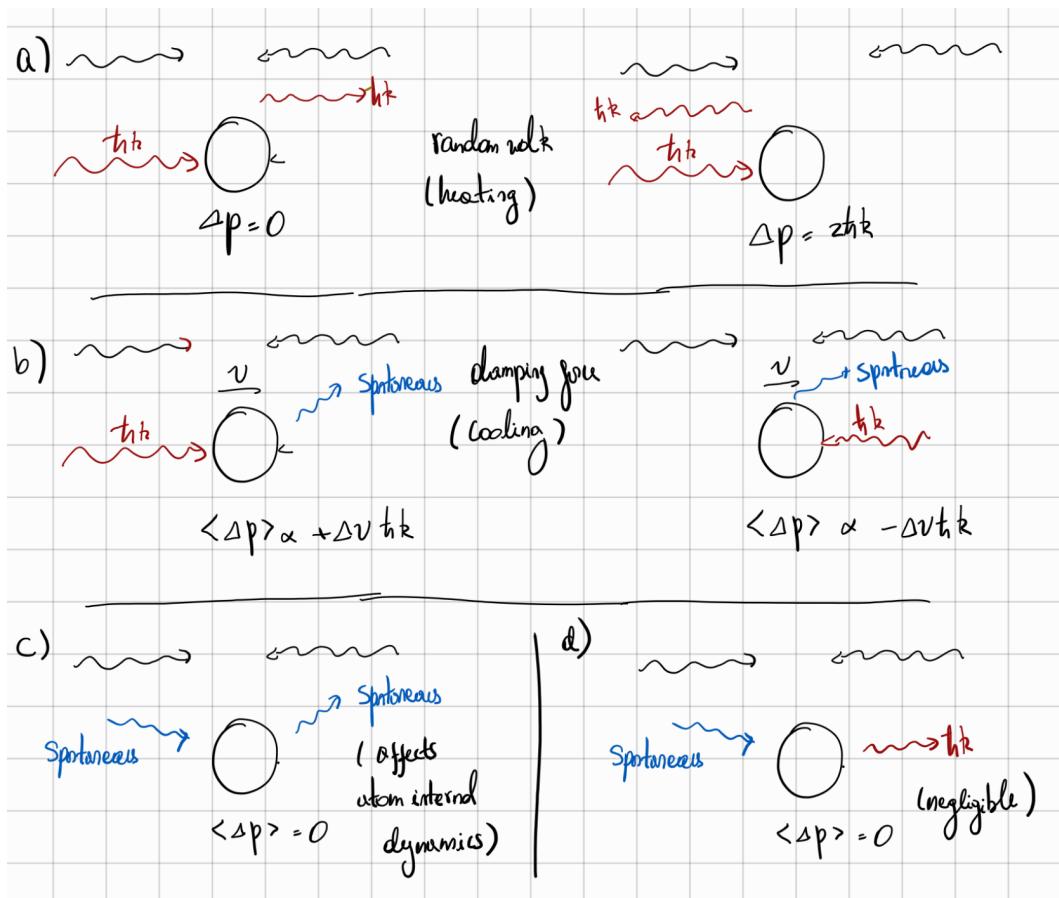 a)
ħk
ħk
Δp = 0
random walk
(heating)
ħk
ħk
Δp = 2ħk
b)
v
Spontaneous
ħk
<Δp> α +Δv ħk
damping force
(cooling)
v
Spontneous
ħk
<Δp> α -Δv ħk
c)
Spontaneous
Spontaneous
(affects
atom internal
dynamics)
<Δp> = 0
d)
Spontaneous
ħk
(negligible)
<Δp> = 0